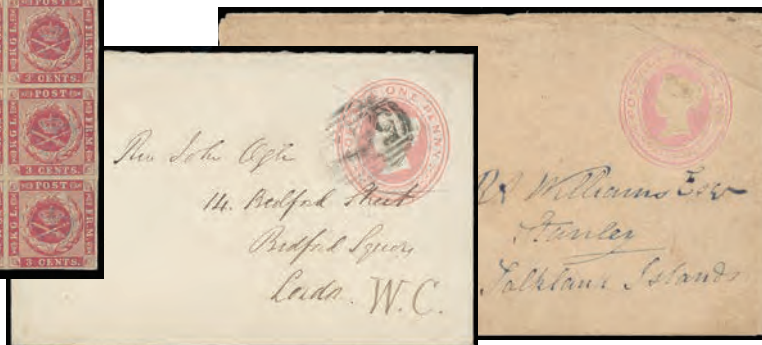 POST
K G L
F R M
3 CENTS.
POST
K G L
F R M
3 CENTS.
POST
K G L
F R M
3 CENTS.
ONE PENNY
Rev John Ogle
14. Bedford Street
Bedford Square
London. W.C.
Williams Esqr
Stanley
Falkland Islands